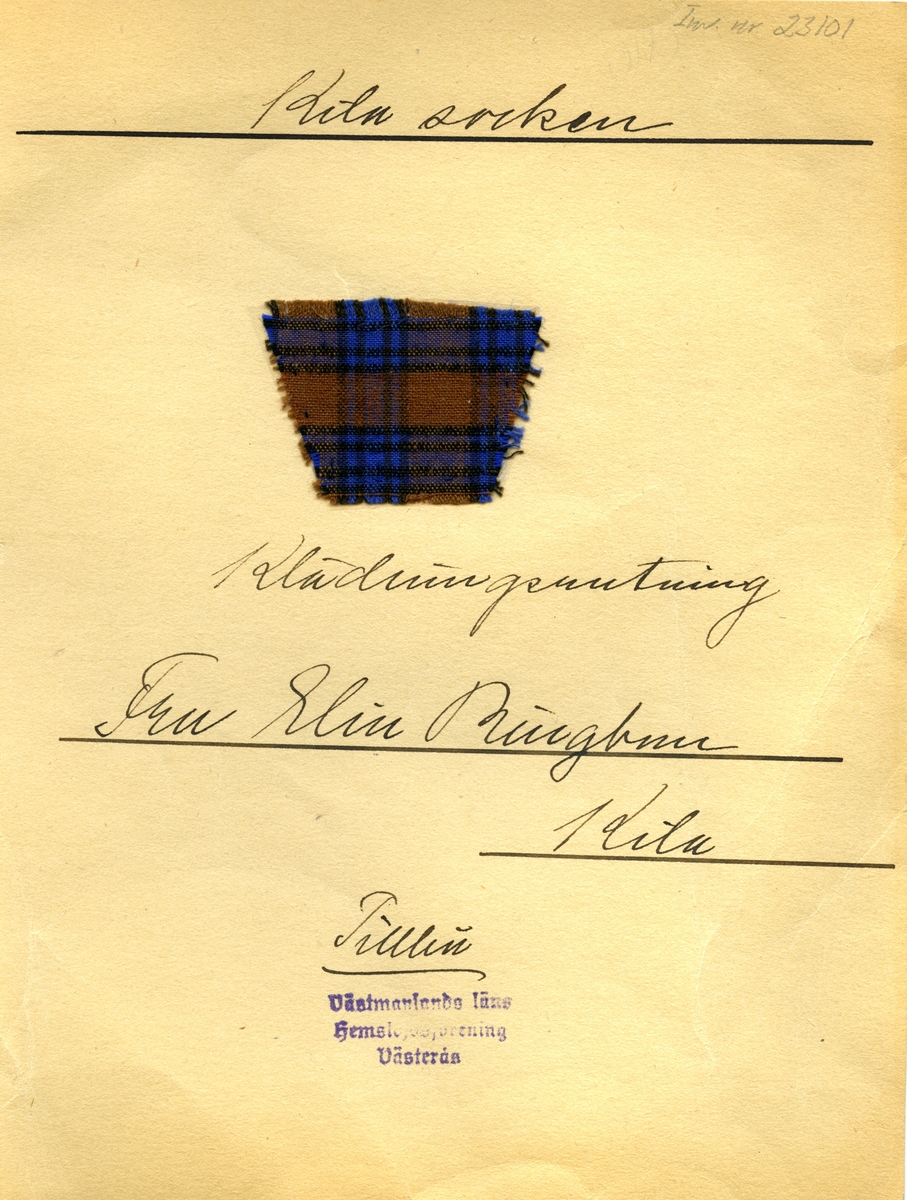 Inv. nr. 23101
Kila socken
Klädningsrutning
Fru Elin Ringbom
Kila
Västmanlands läns
Hemslöjdsförening
Västerås